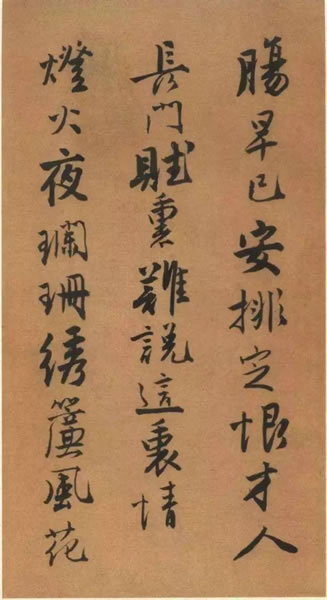 腸早已安排定恨才人
長門賦裏難説這裏情
燈火夜瓓珊綉簾風花